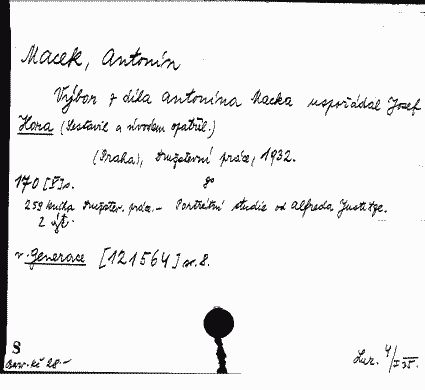 Macek, Antonín
Výbor z díla Antonína Macka uspořádal Josef
Hora (Sestavil a úvodem opatřil.)
(Praha), Družstevní práce, 1932.
170 [V] s. 8°
259 kniha Družstev. práce. — Portrétní studie od Alfreda Justitze.
2 výt.
v. Generace [121564] sv. 8.
S
Barv. Kč 28.—
4/I 35.